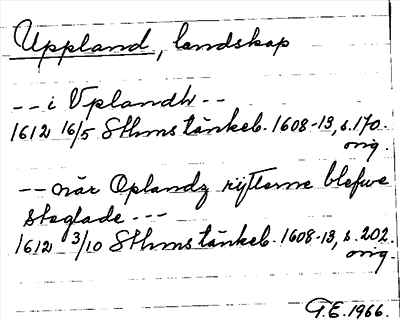 Uppland, landskap
-- i Vplandh --
1612 16/5 Sthms tänkeb. 1608-13, s. 170.
orig.
-- när Oplandz rytterne blefwe
steglade ---
1612 3/10 Sthms tänkeb. 1608-13, s. 202.
orig.
G.E. 1966.